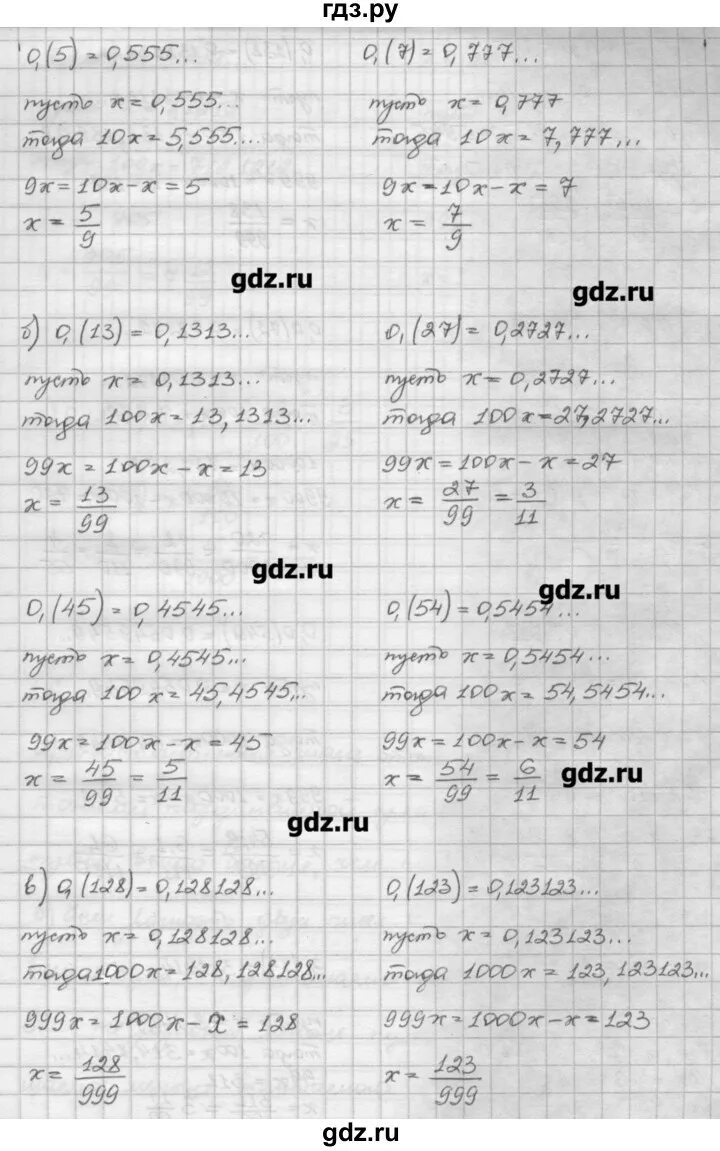 гдз.ру
0,(5) = 0,555...
пусть x = 0,555...
тогда 10x = 5,555...
9x = 10x - x = 5
x = 5/9
0,(7) = 0,777...
пусть x = 0,777
тогда 10x = 7,777...
9x = 10x - x = 7
x = 7/9
gdz.ru
gdz.ru
б) 0,(13) = 0,1313...
пусть x = 0,1313...
тогда 100x = 13,1313...
99x = 100x - x = 13
x = 13/99
0,(27) = 0,2727...
пусть x = 0,2727...
тогда 100x = 27,2727...
99x = 100x - x = 27
x = 27/99 = 3/11
gdz.ru
gdz.ru
0,(45) = 0,4545...
пусть x = 0,4545...
тогда 100x = 45,4545...
99x = 100x - x = 45
x = 45/99 = 5/11
0,(54) = 0,5454...
пусть x = 0,5454...
тогда 100x = 54,5454...
99x = 100x - x = 54
x = 54/99 = 6/11
gdz.ru
gdz.ru
в) 0,(128) = 0,128128...
пусть x = 0,128128...
тогда 1000x = 128,128128...
999x = 1000x - x = 128
x = 128/999
0,(123) = 0,123123...
пусть x = 0,123123...
тогда 1000x = 123,123123...
999x = 1000x - x = 123
x = 123/999
gdz.ru